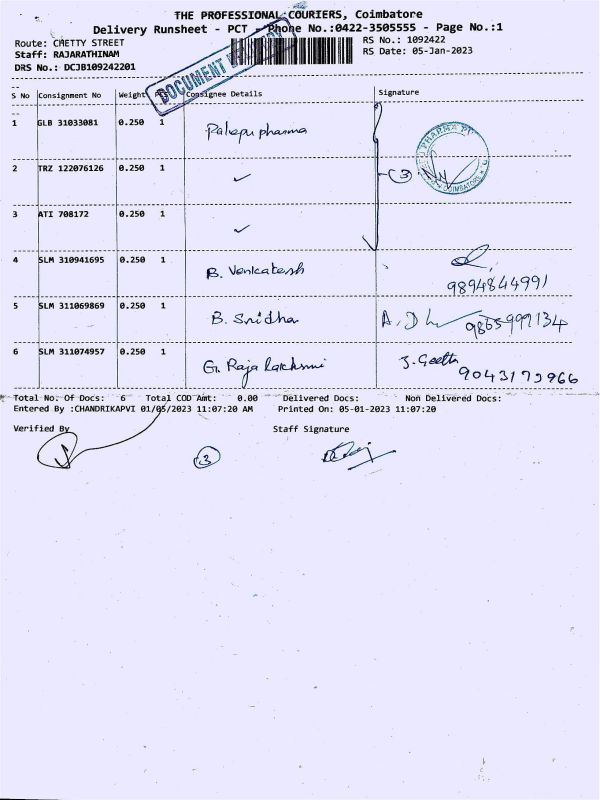 THE PROFESSIONAL COURIERS, Coimbatore
Delivery Runsheet - PCT - Phone No.:0422-3505555 - Page No.:1
Route: CHETTY STREET
RS No.: 1092422
Staff: RAJARATHINAM
RS Date: 05-Jan-2023
DRS No.: DCJB109242201
DOCUMENT
S No Consignment No Weight Pcs Consignee Details Signature
1 GLB 31033081 0.250 1 pharma
2 TRZ 122076126 0.250 1 (3)
3 ATI 708172 0.250 1
4 SLM 310941695 0.250 1 B. Venkatesh
9894844991
5 SLM 311069869 0.250 1 B. Sridha 9865999134
6 SLM 311074957 0.250 1 G. Raja Lakshmi J. Geetha
9043179966
PHARMA
COIMBATORE
Total No. Of Docs: 6 Total COD Amt: 0.00 Delivered Docs: Non Delivered Docs:
Entered By :CHANDRIKAPVI 01/05/2023 11:07:20 AM Printed On: 05-01-2023 11:07:20
Verified By Staff Signature
3